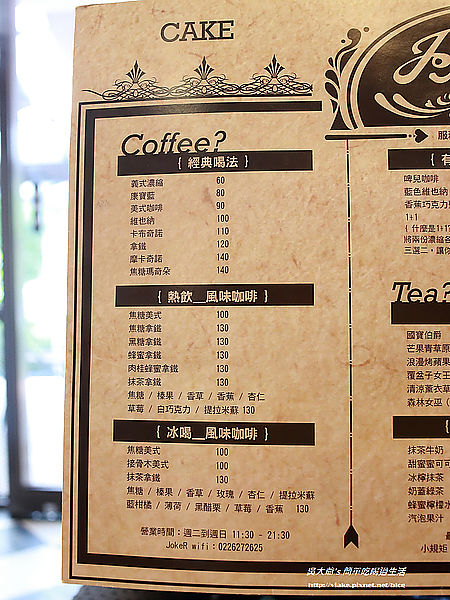 CAKE
Coffee?
{ 經典喝法 }
義式濃縮 60
康寶藍 80
美式咖啡 90
維也納 100
卡布奇諾 110
拿鐵 120
摩卡奇諾 140
焦糖瑪奇朵 140
{ 熱飲__風味咖啡 }
焦糖美式 100
焦糖拿鐵 130
黑糖拿鐵 130
蜂蜜拿鐵 130
肉桂蜂蜜拿鐵 130
抹茶拿鐵 130
焦糖 / 榛果 / 香草 / 香蕉 / 杏仁
草莓 / 白巧克力 / 提拉米蘇 130
{ 冰喝__風味咖啡 }
焦糖美式 100
接骨木美式 100
抹茶拿鐵 130
焦糖 / 榛果 / 香草 / 玫瑰 / 杏仁 / 提拉米蘇
藍柑橘 / 薄荷 / 黑醋栗 / 草莓 / 香蕉 130
營業時間：週二到週日 11:30 - 21:30
JokeR wifi：0226272625
服
{ 有
啤兒咖啡
藍色維也納
香蕉巧克力
1+1
{ 什麼是1+1?
將兩份濃縮
三選二，讓你
Tea?
國寶伯爵
芒果青草原
浪漫烤蘋果
覆盆子女王
清涼薰衣草
森林女巫 (
{
抹茶牛奶
甜蜜蜜可可
冰檸抹茶
奶蓋綠茶
蜂蜜檸檬水
汽泡果汁
小規矩
吳大妮's 簡示吃喝過生活
http://viake.pixnet.net/blog